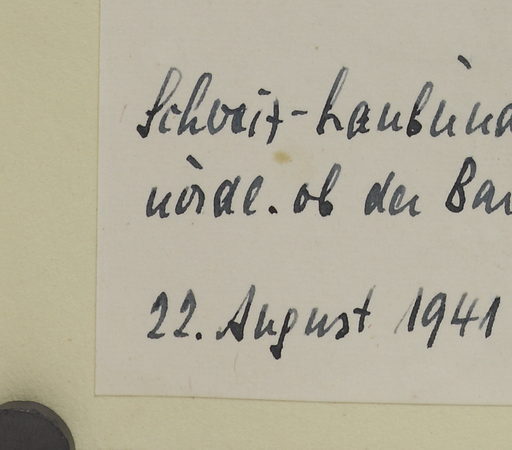 Schweiz-Graubünd
nördl. ob der Bar
22. August 1941